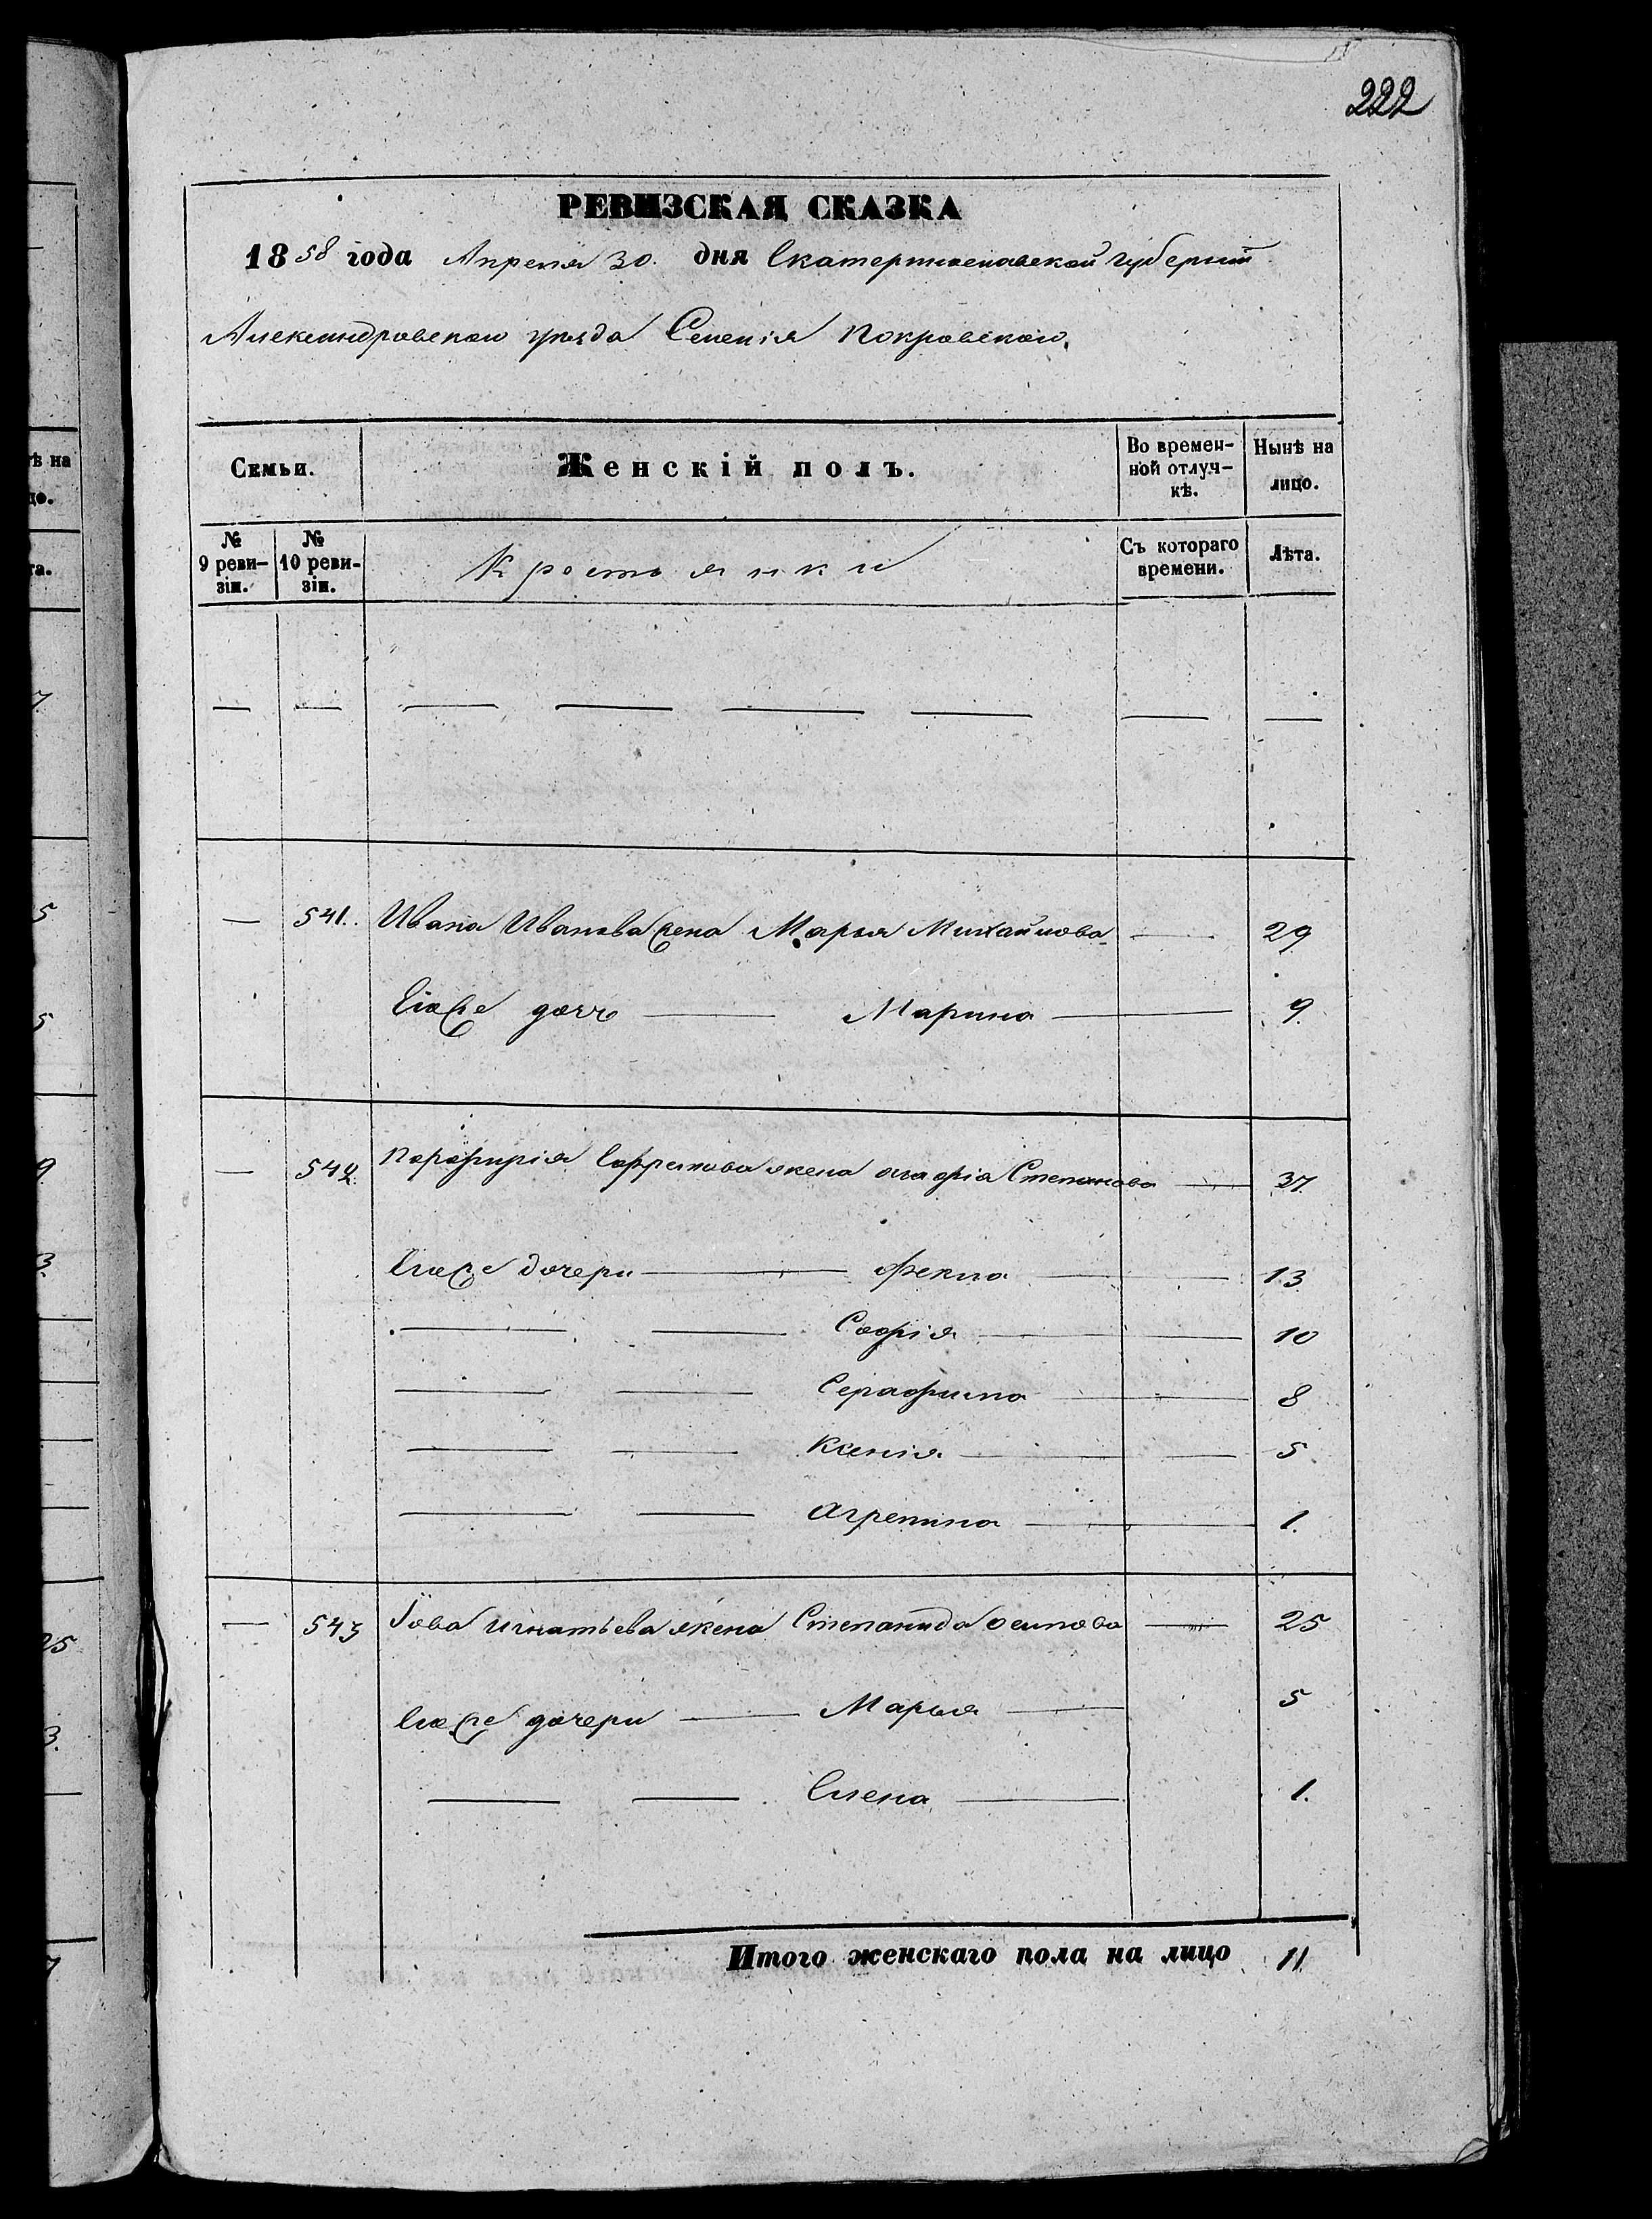 222
РЕВИЗСКАЯ СКАЗКА
1858 года Апреля 30. дня Екатеринославской губернии
Александровскаго уезда Селенія Покровскаго.
Семьи. Женскій полъ. Во времен- Нынѣ на
ной отлуч- лицо.
кѣ.
№ № Съ котораго Лѣта.
9 реви- 10 реви- Крестьянки времени.
зіи. зіи.
— — — — — — — —
— 541. Ивана Иванова жена Марья Михайлова — 29
Егоже дочь — Марина — 9.
— 542. Порфирія Ефремова жена Агафія Степанова — 37.
Егоже дочери — Фекла — 13
— — Софія — 10
— — Серафима — 8
— — Ксенія — 5
— — Агрепина — 1.
— 543 Іова Игнатьева жена Степанида Осипова — 25
Егоже дочери — Марья — 5
— — Елена — 1.
Итого женскаго пола на лицо 11
ѣ на
цо.
та.
7.
5
5
9.
3.
25
3.
7